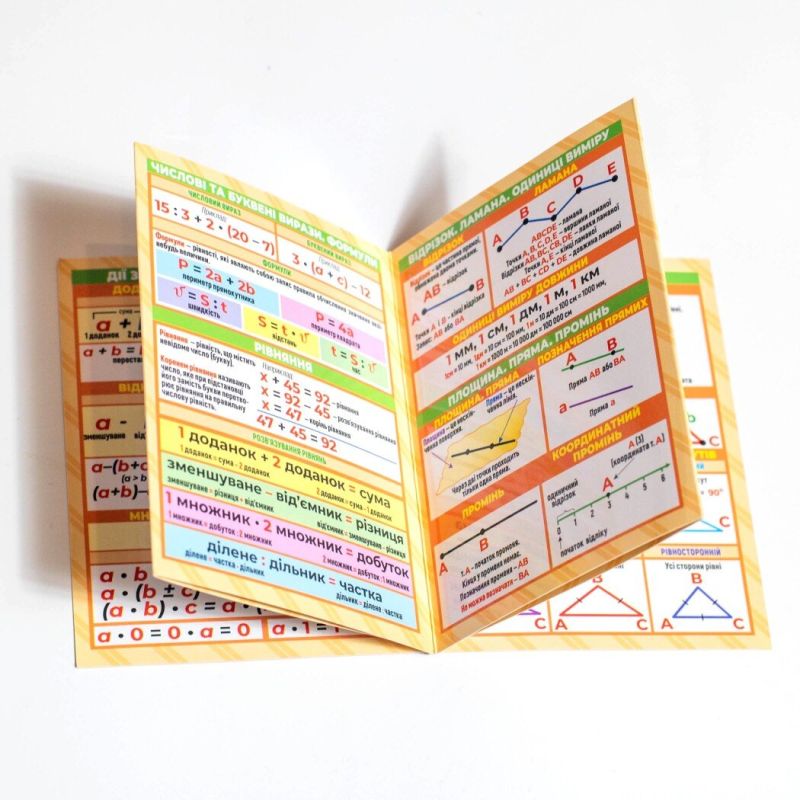 ЧИСЛОВІ ТА БУКВЕНІ ВИРАЗИ. ФОРМУЛИ
ЧИСЛОВИЙ ВИРАЗ
Приклад
15 : 3 + 2 · (20 – 7)
БУКВЕНИЙ ВИРАЗ
Приклад
3 · (a + c) – 12
ФОРМУЛИ
Формули – рівності, які являють собою запис правила обчислення значень
P = 2a + 2b
периметр прямокутника
P = 4a
периметр квадрата
v = S : t
швидкість
S = t · v
відстань
t = S : v
час
РІВНЯННЯ
Рівняння – рівність, що містить
невідоме число (букву).
Коренем рівняння називають
число, яке при підстановці
його замість букви перетво-
рює рівняння на правильну
числову рівність.
Наприклад
x + 45 = 92 – рівняння
x = 92 – 45 – розв'язування рівняння
x = 47 – корінь рівняння
47 + 45 = 92
РОЗВ'ЯЗУВАННЯ РІВНЯНЬ
1 доданок + 2 доданок = сума
1 доданок = сума – 2 доданок
2 доданок = сума – 1 доданок
зменшуване – від'ємник = різниця
зменшуване = різниця + від'ємник
від'ємник = зменшуване – різниця
1 множник · 2 множник = добуток
1 множник = добуток : 2 множник
2 множник = добуток : 1 множник
ділене : дільник = частка
ділене = частка · дільник
дільник = ділене : частка
ВІДРІЗОК. ЛАМАНА. ОДИНИЦІ ВИМІРУ
ВІДРІЗОК
Відрізок – це частина прямої,
обмежена двома точками.
AB – відрізок
A
B
Точки A і B – кінці відрізка
Запис: AB або BA
ЛАМАНА
A
B
C
D
E
ABCDE – ламана
Точки A, B, C, D, E – вершини ламаної
Відрізки AB, BC, CD, DE – ланки ламаної
Точки A, E – кінці ламаної
AB + BC + CD + DE – довжина ламаної
ОДИНИЦІ ВИМІРУ ДОВЖИНИ
1 ММ, 1 СМ, 1 ДМ, 1 М, 1 КМ
1см = 10 мм, 1дм = 10 см = 100 мм, 1м = 10 дм = 100 см = 1000 мм,
1 км = 1000 м = 10 000 дм = 100 000 см
ПЛОЩИНА. ПРЯМА. ПРОМІНЬ
ПЛОЩИНА, ПРЯМА
Площина – це нескін-
ченна поверхня.
Пряма – це нескін-
ченна лінія.
Через дві точки проходить
тільки одна пряма.
ПОЗНАЧЕННЯ ПРЯМИХ
A
B
Пряма AB або BA
a
Пряма a
ПРОМІНЬ
A
B
т. A – початок променя.
Кінця у променя немає.
Позначення променя – AB
Не можна визначати – BA
КООРДИНАТНИЙ
ПРОМІНЬ
A (3)
(координата т. A)
одиничний
відрізок
A
0 1 2 3 4 5 6
початок відліку
ДІЇ З
сума
a +
1 доданок
a + b =
переста
a –
зменшуване
a–(b+c
(a+b)–
a · b
a · (b ± c)
(a · b) · c = a ·
a · 0 = 0 · a = 0
a · 1 =
C
90°
C
РІВНОСТОРОННІЙ
Усі сторони рівні
B
A
C
B
A
C